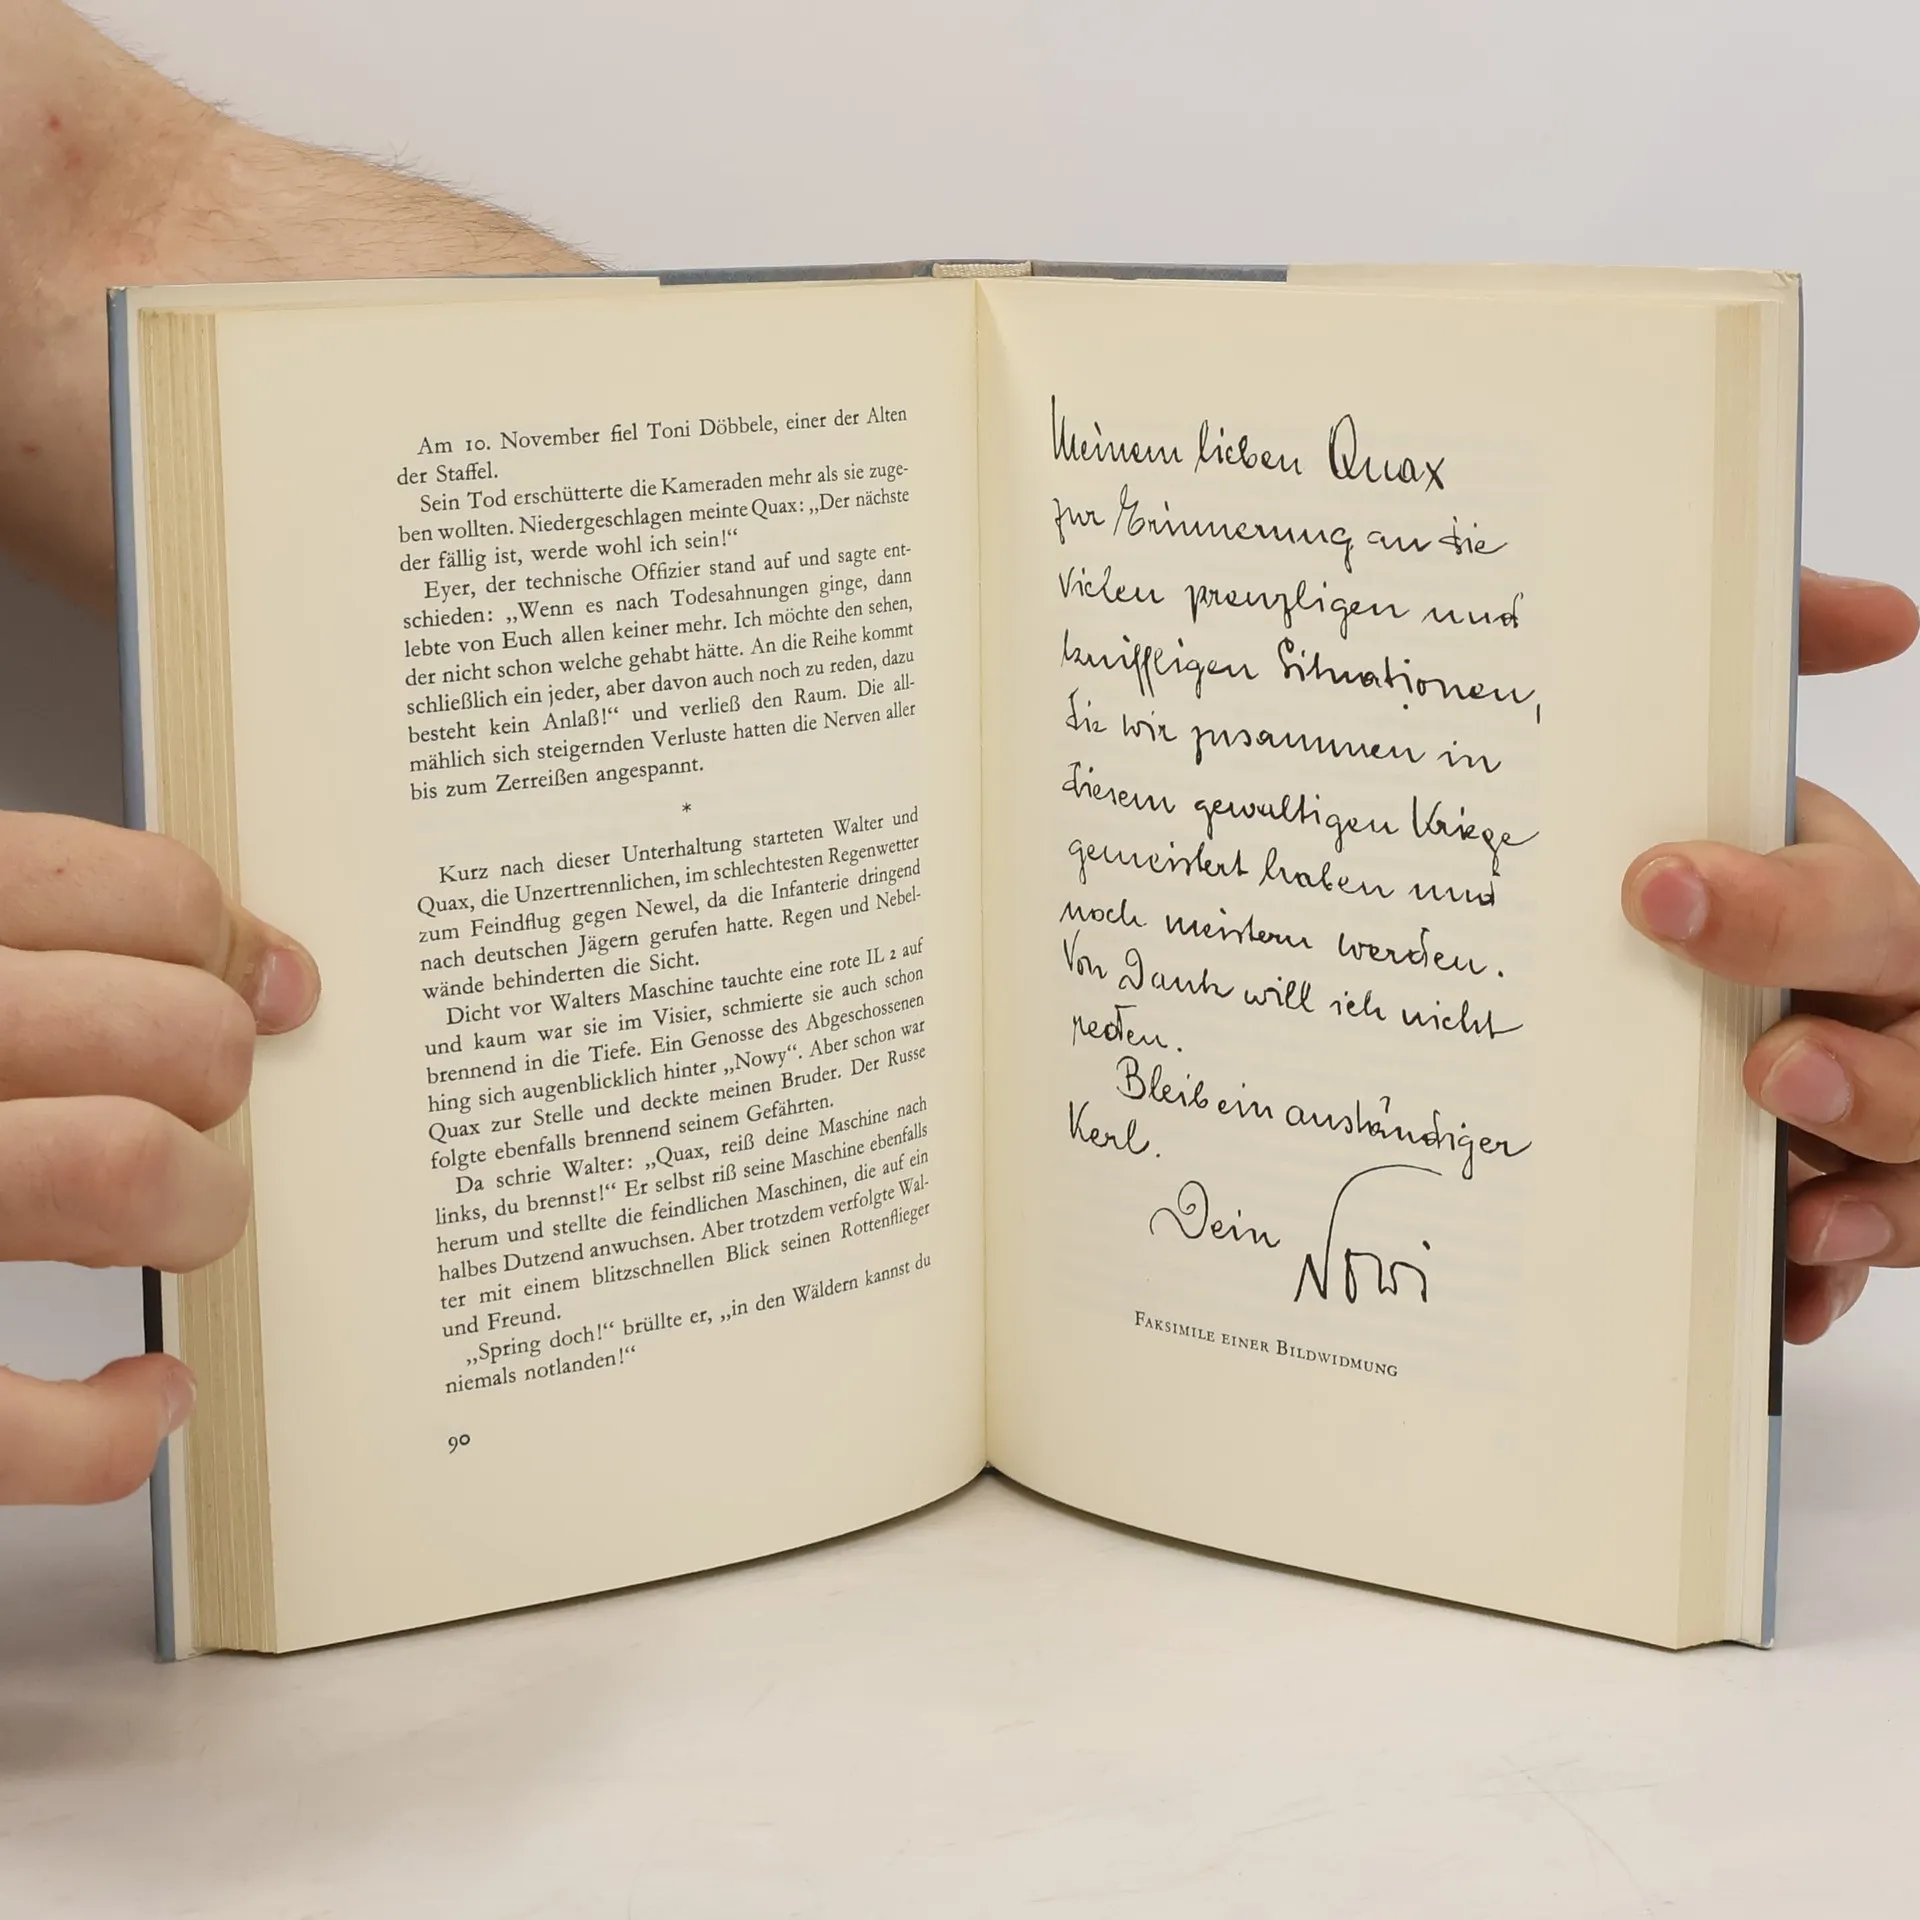 Am 10. November fiel Toni Döbbele, einer der Alten
der Staffel.
Sein Tod erschütterte die Kameraden mehr als sie zuge-
ben wollten. Niedergeschlagen meinte Quax: „Der nächste
der fällig ist, werde wohl ich sein!“
Eyer, der technische Offizier stand auf und sagte ent-
schieden: „Wenn es nach Todesahnungen ginge, dann
lebte von Euch allen keiner mehr. Ich möchte den sehen,
der nicht schon welche gehabt hätte. An die Reihe kommt
schließlich ein jeder, aber davon auch noch zu reden, dazu
besteht kein Anlaß!“ und verließ den Raum. Die all-
mählich sich steigernden Verluste hatten die Nerven aller
bis zum Zerreißen angespannt.
*
Kurz nach dieser Unterhaltung starteten Walter und
Quax, die Unzertrennlichen, im schlechtesten Regenwetter
zum Feindflug gegen Newel, da die Infanterie dringend
nach deutschen Jägern gerufen hatte. Regen und Nebel-
wände behinderten die Sicht.
Dicht vor Walters Maschine tauchte eine rote IL 2 auf
und kaum war sie im Visier, schmierte sie auch schon
brennend in die Tiefe. Ein Genosse des Abgeschossenen
hing sich augenblicklich hinter „Nowy“. Aber schon war
Quax zur Stelle und deckte meinen Bruder. Der Russe
folgte ebenfalls brennend seinem Gefährten.
Da schrie Walter: „Quax, reiß deine Maschine nach
links, du brennst!“ Er selbst riß seine Maschine ebenfalls
herum und stellte die feindlichen Maschinen, die auf ein
halbes Dutzend anwuchsen. Aber trotzdem verfolgte Wal-
ter mit einem blitzschnellen Blick seinen Rottenflieger
und Freund.
„Spring doch!“ brüllte er, „in den Wäldern kannst du
niemals notlanden!“
90
Meinem lieben Quax
zur Erinnerung an die
vielen prenzligen und
kniffligen Situationen,
die wir zusammen in
diesem gewaltigen Kriege
gemeistert haben und
noch meistern werden.
Von Dank will ich nicht
reden.
Bleib ein anständiger
Kerl.
Dein Nowi
FAKSIMILE EINER BILDWIDMUNG